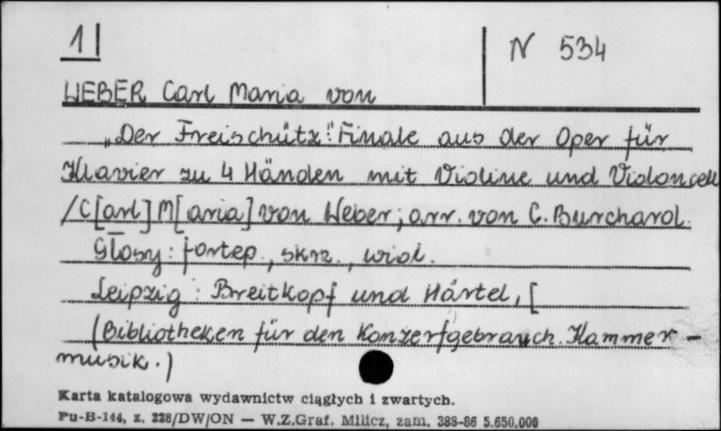 1
N 534
WEBER Carl Maria von
„Der Freischütz": Finale aus der Oper für
Klavier zu 4 Händen mit Violine und Violoncell
/C[arl] M[aria] von Weber; arr. von C. Burchard.
Głosy: fortep., skrz., wiol.
Leipzig: Breitkopf und Härtel, [
(Bibliotheken für den Konzertgebrauch. Kammer-
musik.)
Karta katalogowa wydawnictw ciągłych i zwartych.
Pu-B-144, z. 228/DW/ON — W.Z.Graf. Milicz, zam. 388-86 5.650.000